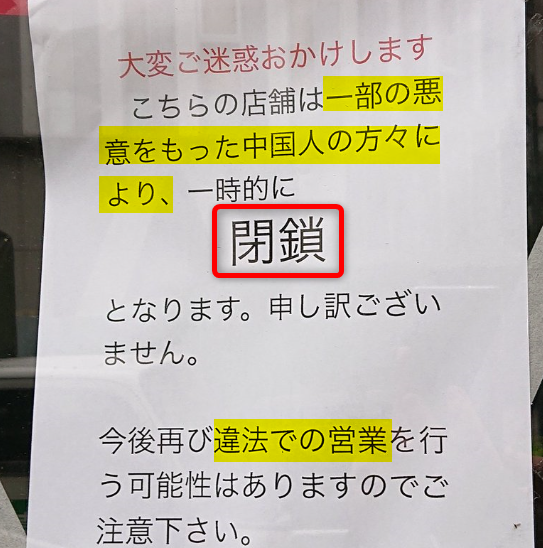 大変ご迷惑おかけします
こちらの店舗は一部の悪
意をもった中国人の方々に
より、一時的に
閉鎖
となります。申し訳ござい
ません。
今後再び違法での営業を行
う可能性はありますのでご
注意下さい。